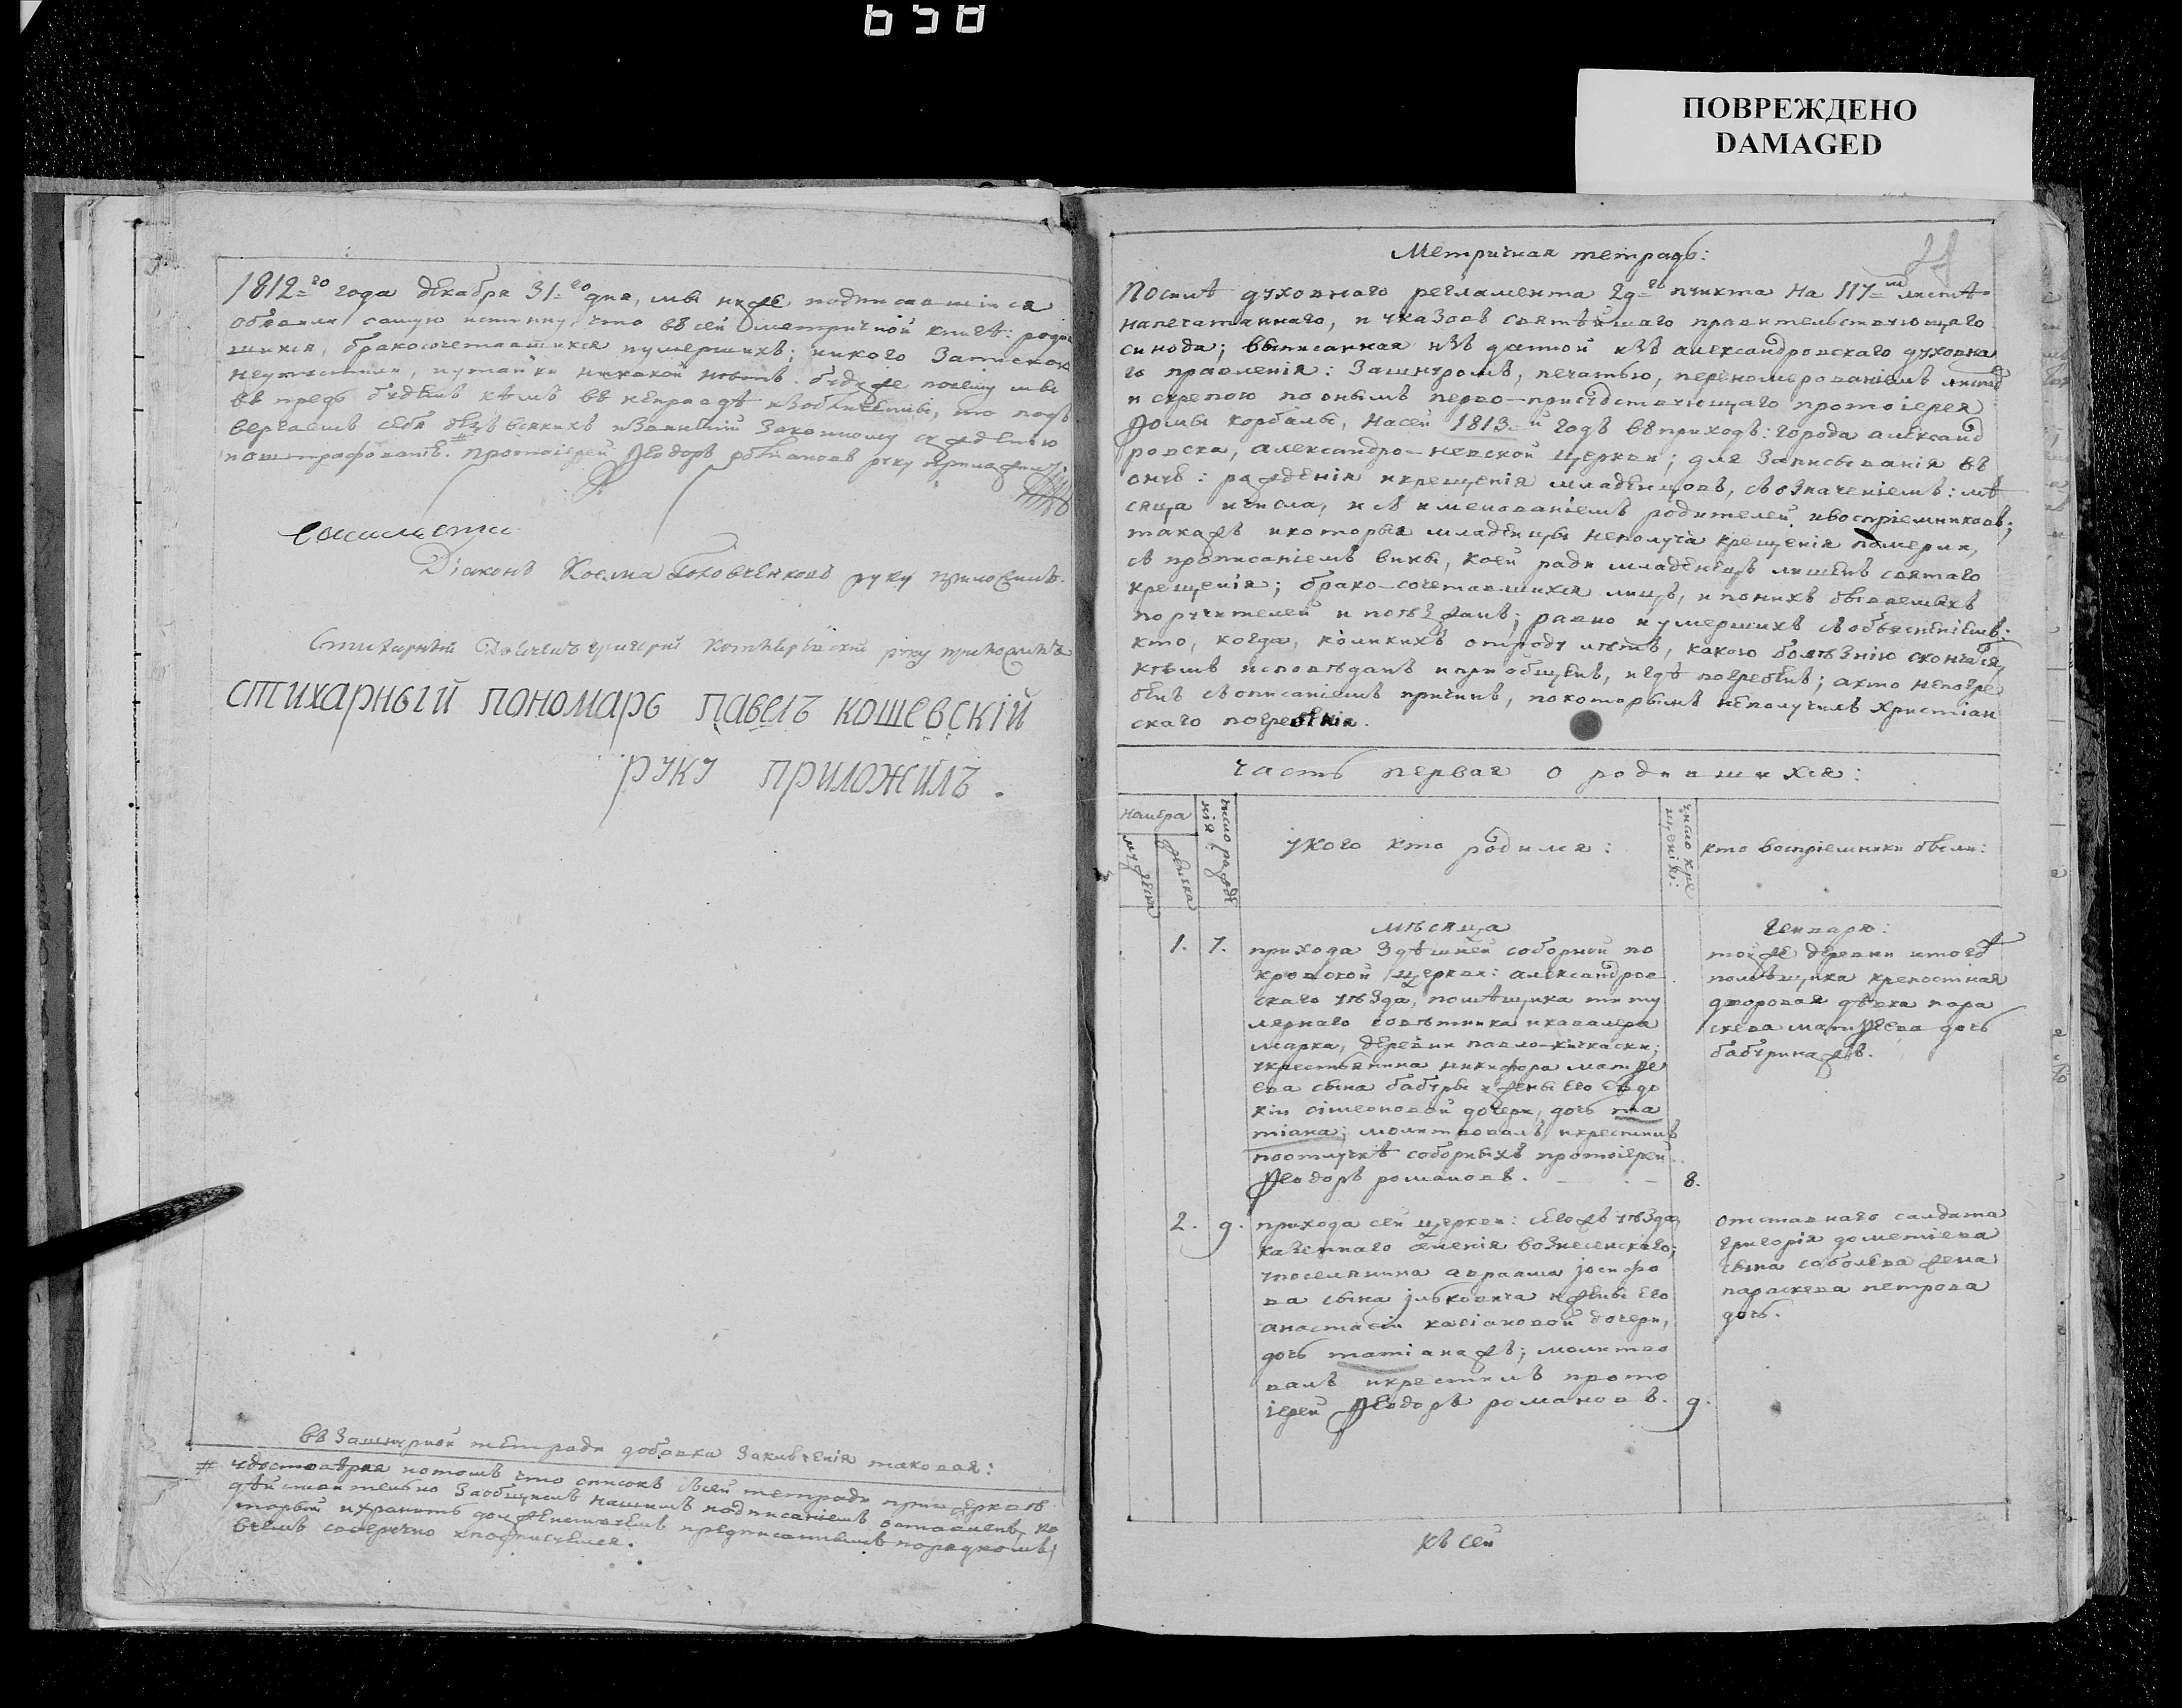 658
ПОВРЕЖДЕНО
DAMAGED
1812=го года декабря 31=го дня, мы ниже подписавшіися
объявля самую истинну, что въ сей метричной книгѣ: роди
шихся, бракосочетавшихся иумершихъ; никого Запискою
въ предь будемъ кѣмъ въ неправдѣ изобличенны, то подъ
вергаемъ себя безъ всякихъ Законному сужденію
и оштрафованію.# протоіерей Феодоръ романовъ руку приложилъ.
Діаконъ Косма Головченковъ руку приложилъ.
Стихарный Дьячекъ григорій руку приложилъ
стихарный пономарь павелъ кошевскій
руку приложилъ.
въ Зашнурной тетради добавка Заключенія таковая:
# удостовѣряя потомъ что списокъ съсей тетради при церквѣ
дѣйствительно Заобщимъ нашимъ подписаніемъ оставленъ, ко
торый ихранить долженствуемъ предписаннымъ порядкомъ;
вчемъ соверчно иподписуемся.
Метричная тетрадь:
Посилѣ духовнаго регламента 29=го пункта На 117=мъ листѣ
напечатаннаго, и указовъ святѣйшаго правительствующаго
синода; выписанная изъ данной изъ александровскаго духовна
го правленія: Зашнуромъ, печатью, перенумерованіемъ листовъ
и скрепою по онымъ перво-присудствующаго протоіерея
Фомы корбамы, Насей 1813=й годъ въприходъ: города александ
ровска, александро-невской церкви; для Записыванія въ
онуѣ: рожденія икрещенія младенцовъ, съозначеніемъ: мѣ
сяца ичисла, и съ именованіемъ родителей ивоспріемниковъ;
такожъ икоторыя младенцы неполуча крещенія померли,
съ прописаніемъ вины, коей ради младенецъ лишенъ святаго
крещенія; брако-сочетавшихся лицъ, и понихъ бываемыхъ
поручителей и поѣзжанъ; равно иумершихъ съобъясненіемъ:
кто, когда, коликихъ отроду лѣтъ, какою болѣзнію скончался,
кѣмъ исповѣданъ ипри общенъ, игдѣ погребенъ; акто непогре
бенъ съописаніемъ причинъ, покоторымъ неполучилъ христіан
скаго погребенія.
часть первая о родившихся:
Номера
мужеска
женска
число рожде
нія:
укого кто родился:
число кре
щенія:
кто воспріемники были:
мѣсяца
Генваря:
1. 7. прихода Здѣшней соборной по
кровской церкви: александров
скаго уѣзда, помѣщика титу
лярнаго совѣтника икавалера
марка, деревни павло-кичкаски;
украстьянина никифора матфе
ева сына бабуры ижены Его Евдо
кіи сімеоновой дочери, дочь та
тіана; молитвовалъ икрестилъ
поотлучкѣ соборныхъ протоіерей
Феодоръ романовъ. 8.
тойже деревни итогожъ
помѣщика крепостная
дворовая дѣвка пара
скева матфеева дочь
бабурина жъ.
2. 9. прихода сей церкви: сегожъ уѣзда
казеннаго имѣнія вознесенскаго;
упоселянина авраама іосифо
ва сына ільковича ижены Его
анастасіи касіановой дочери,
дочь татіана жъ; молитво
валъ икрестилъ прото
іерей Феодоръ романовъ. 9.
отставнаго салдата
григорія дометіева
сына соболева жена
параскева петрова
дочь.
къ сей